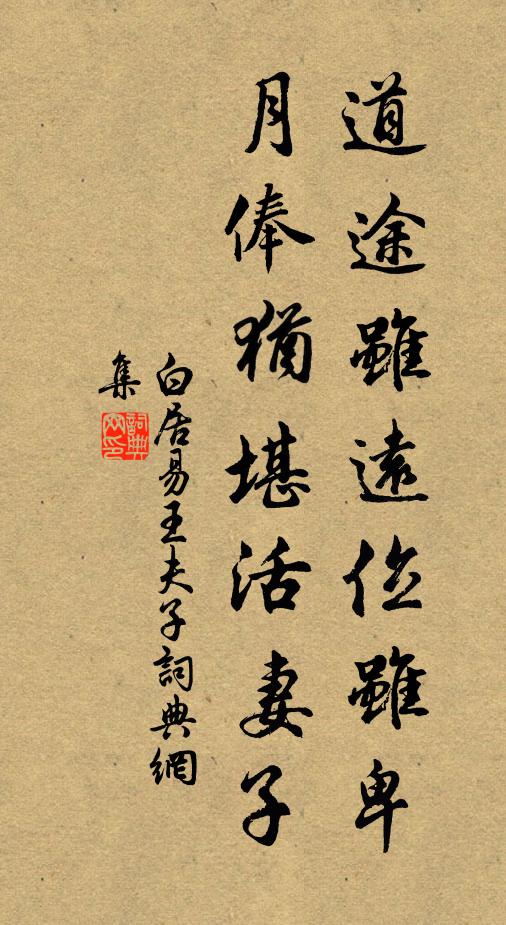 道途雖遠位雖卑
月俸猶堪活妻子
白居易王夫子詞典網
集
詞典網印